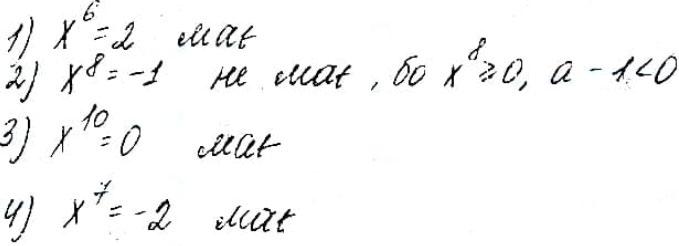 1) x⁶ = 2 має
2) x⁸ = -1 не має, бо x⁸ ≥ 0, а -1 < 0
3) x¹⁰ = 0 має
4) x⁷ = -2 має